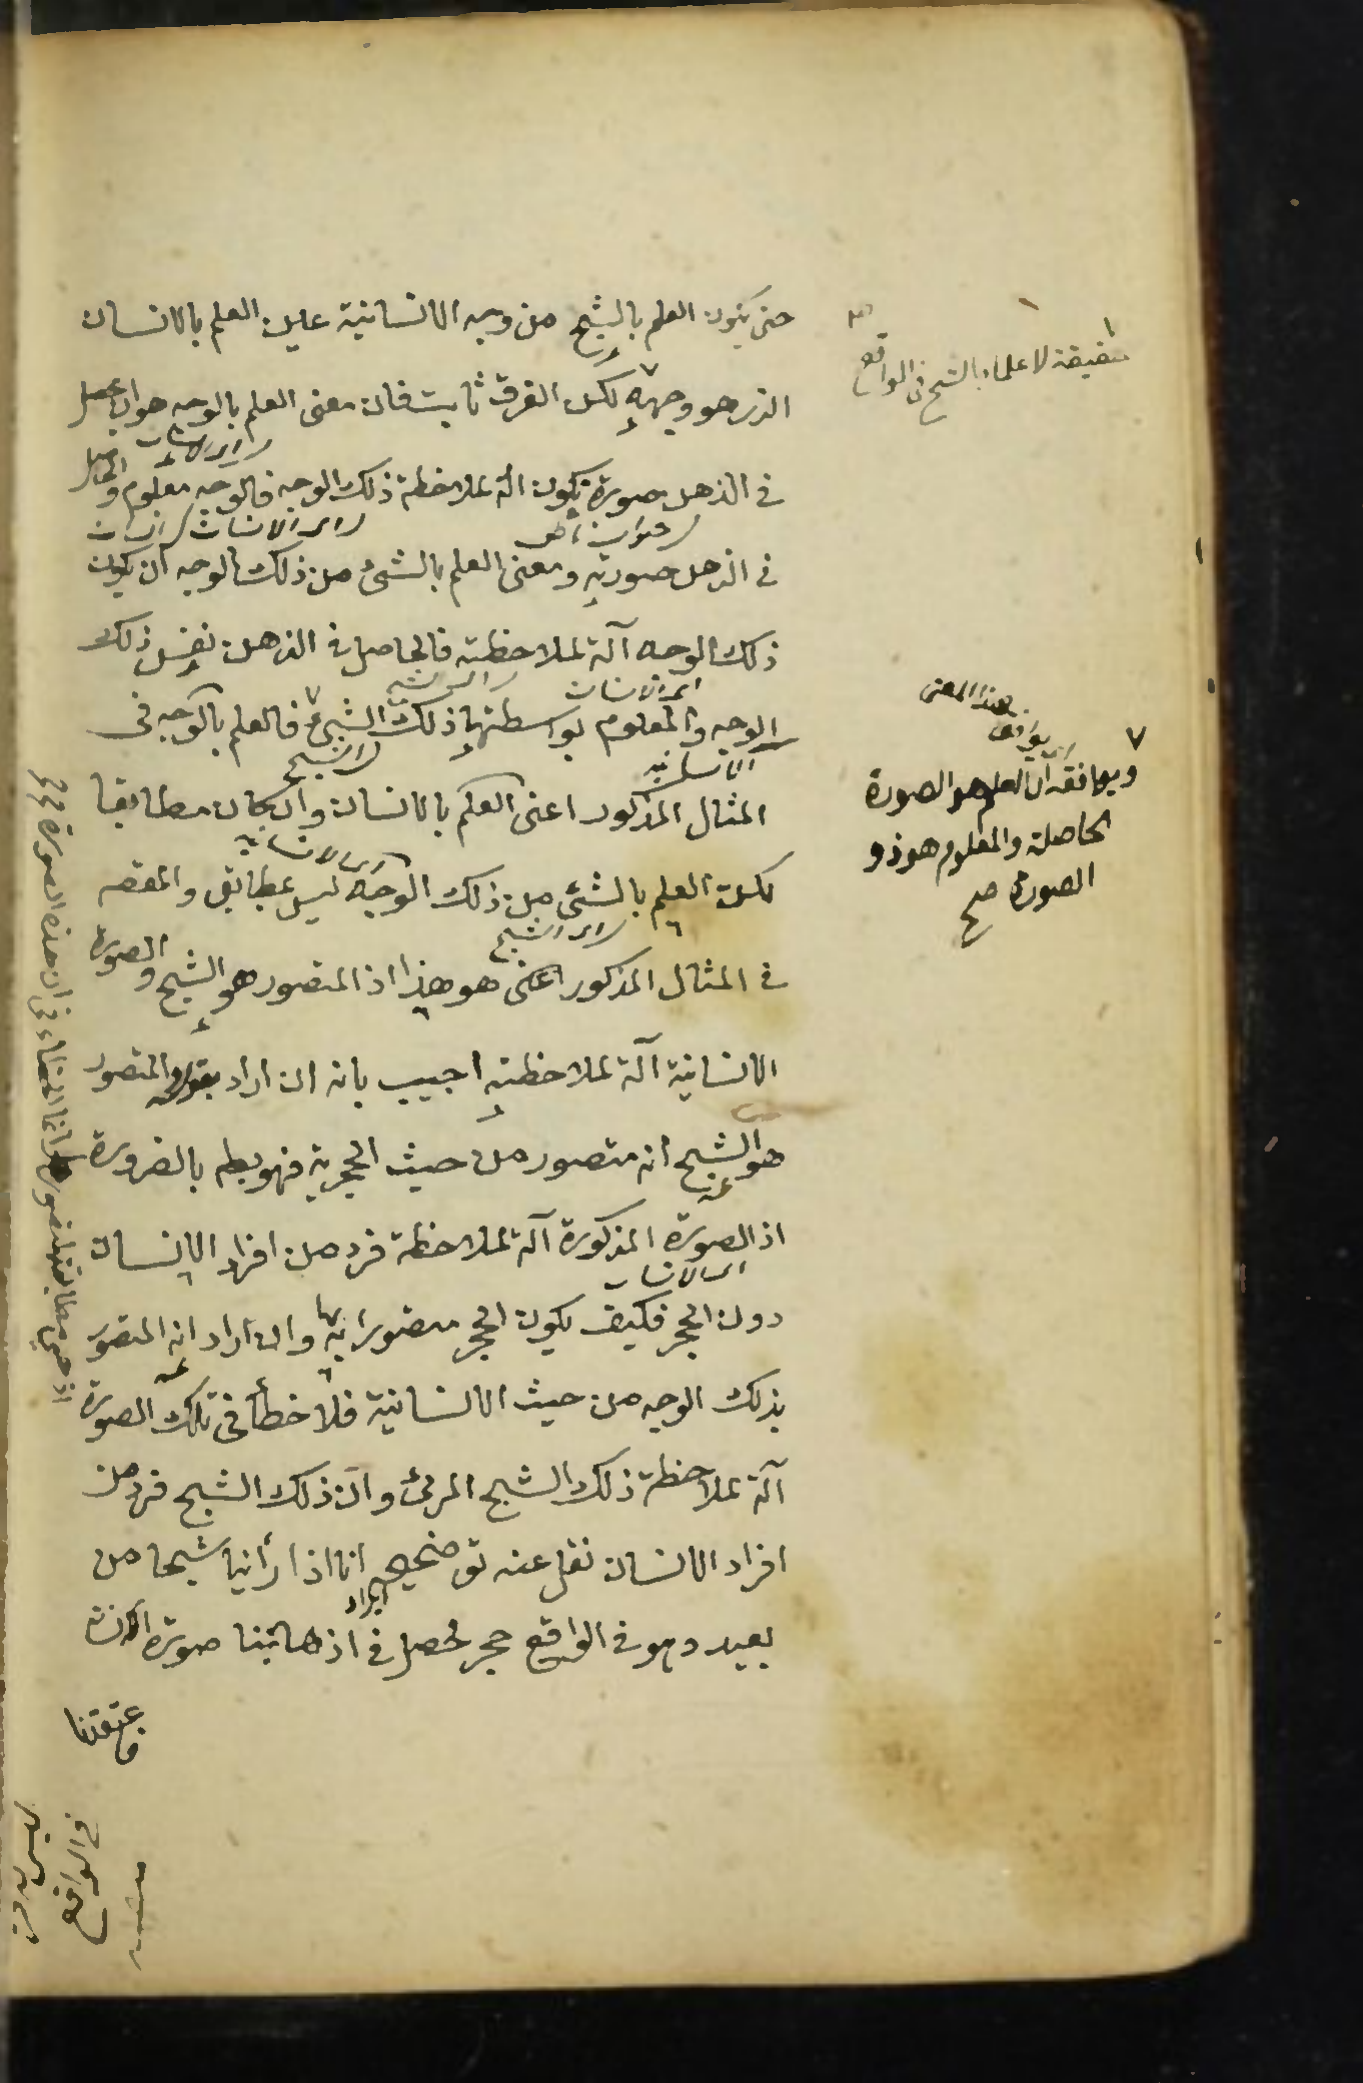 حتى يكون العلم بالشبح من وجه الانسانية عين العلم بالانسان
الذى هو وجهه لكن الفرق ثابت فان معنى العلم بالوجه هو ان يحصل
فى الذهن صورة تكون آلة لملاحظة ذلك الوجه فالوجه معلوم والحاصل
فى الذهن صورته ومعنى العلم بالشئ من ذلك الوجه ان يكون
ذلك الوجه آلة لملاحظته فالحاصل فى الذهن نفس ذلك
الوجه والمعلوم بواسطتها ذلك الشئ فالعلم بالوجه فى
المثال المذكور اعنى العلم بالانسان وان كان مطابقا
لكن العلم بالشئ من ذلك الوجه ليس بمطابق والمقصد
فى المثال المذكور اعنى هو هذا اذ المتصور هو الشبح والصورة
الانسانية آلة لملاحظته اجيب بانه ان اراد بقوله والمتصور
هو الشبح انه متصور من حيث الحجرية فهو بط بالضرورة
اذ الصورة المذكورة آلة لملاحظة فرد من افراد الانسان
دون الحجر فكيف يكون الحجر متصورا بها وان اراد انه المتصور
بذلك الوجه من حيث الانسانية فلا خطأ فى تلك الصورة
آلة لملاحظة ذلك الشبح المرئى وان ذلك الشبح فرد من
افراد الانسان نقل عنه توضيحه انا اذا رأينا شبحا من
بعيد وهو فى الواقع حجر يحصل فى اذهاننا صورة الانسان
واعتقدنا
حقيقة لا علما بالشبح فى الواقع
بهذا المعنى
ويوافقه ان العلم هو الصورة
الحاصلة والمعلوم هو ذو
الصورة صح
فى الواقع